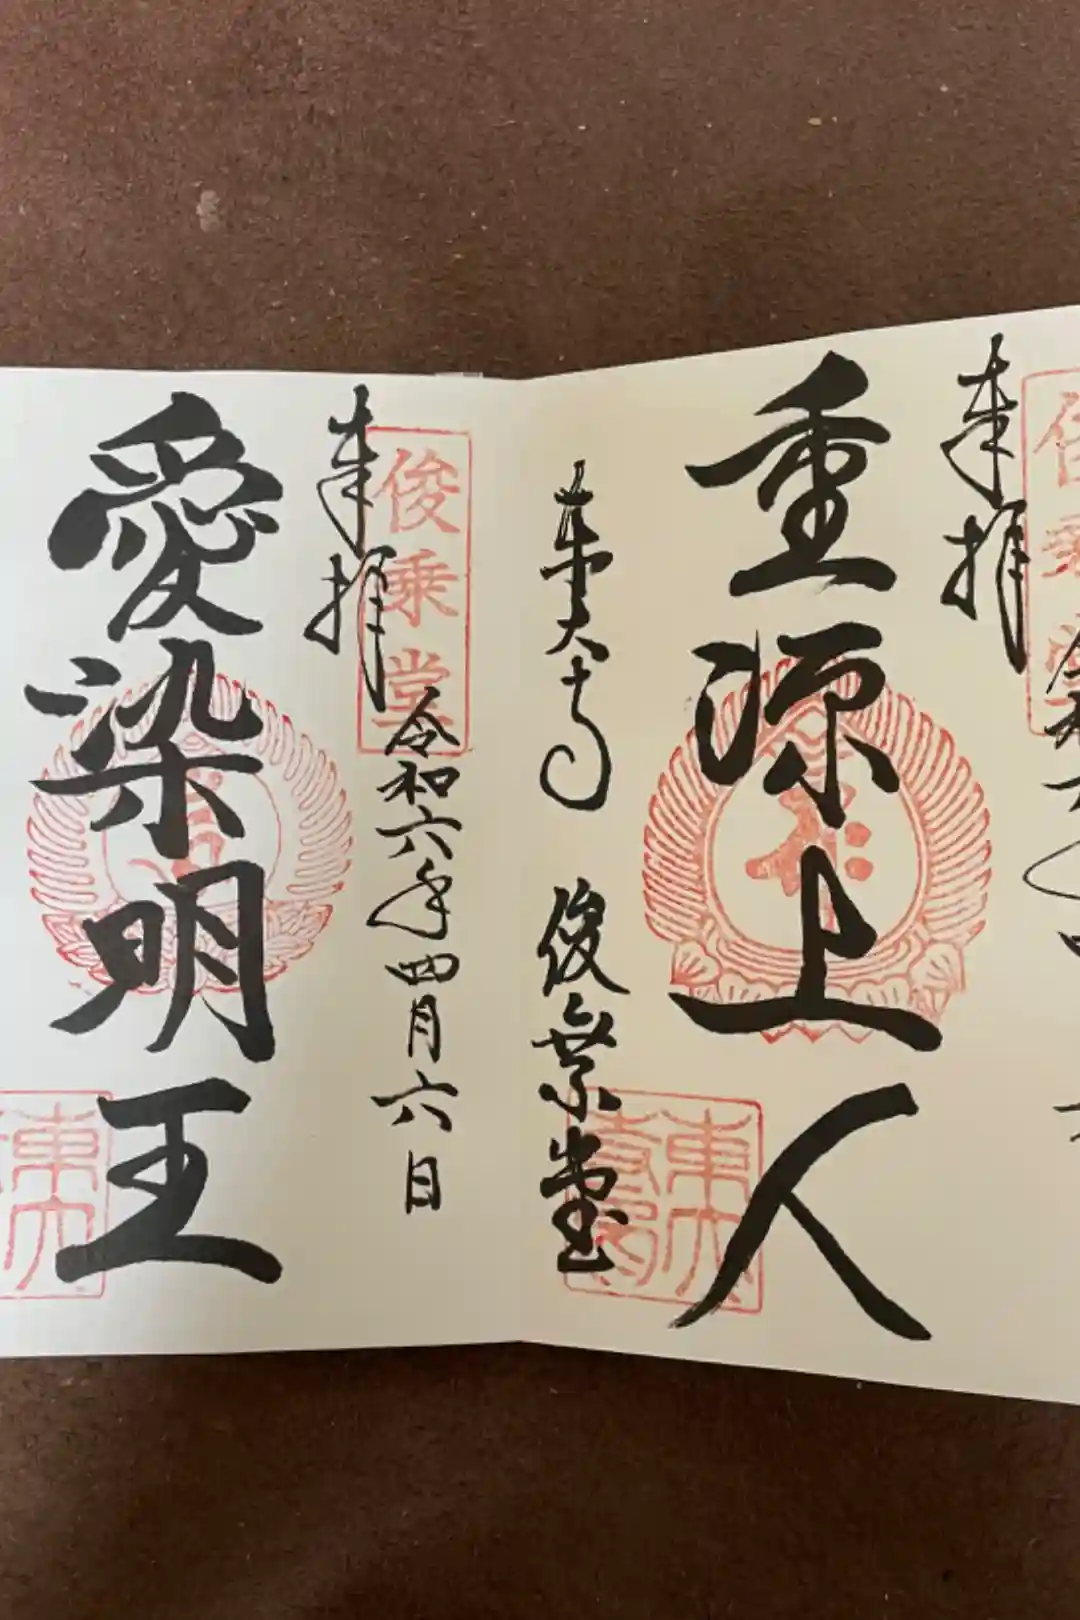 俊乗
奉拝
令和
重源上人
東大寺
俊乗堂
東大寺
俊乗堂
奉拝
令和六年四月六日
愛染明王
東大